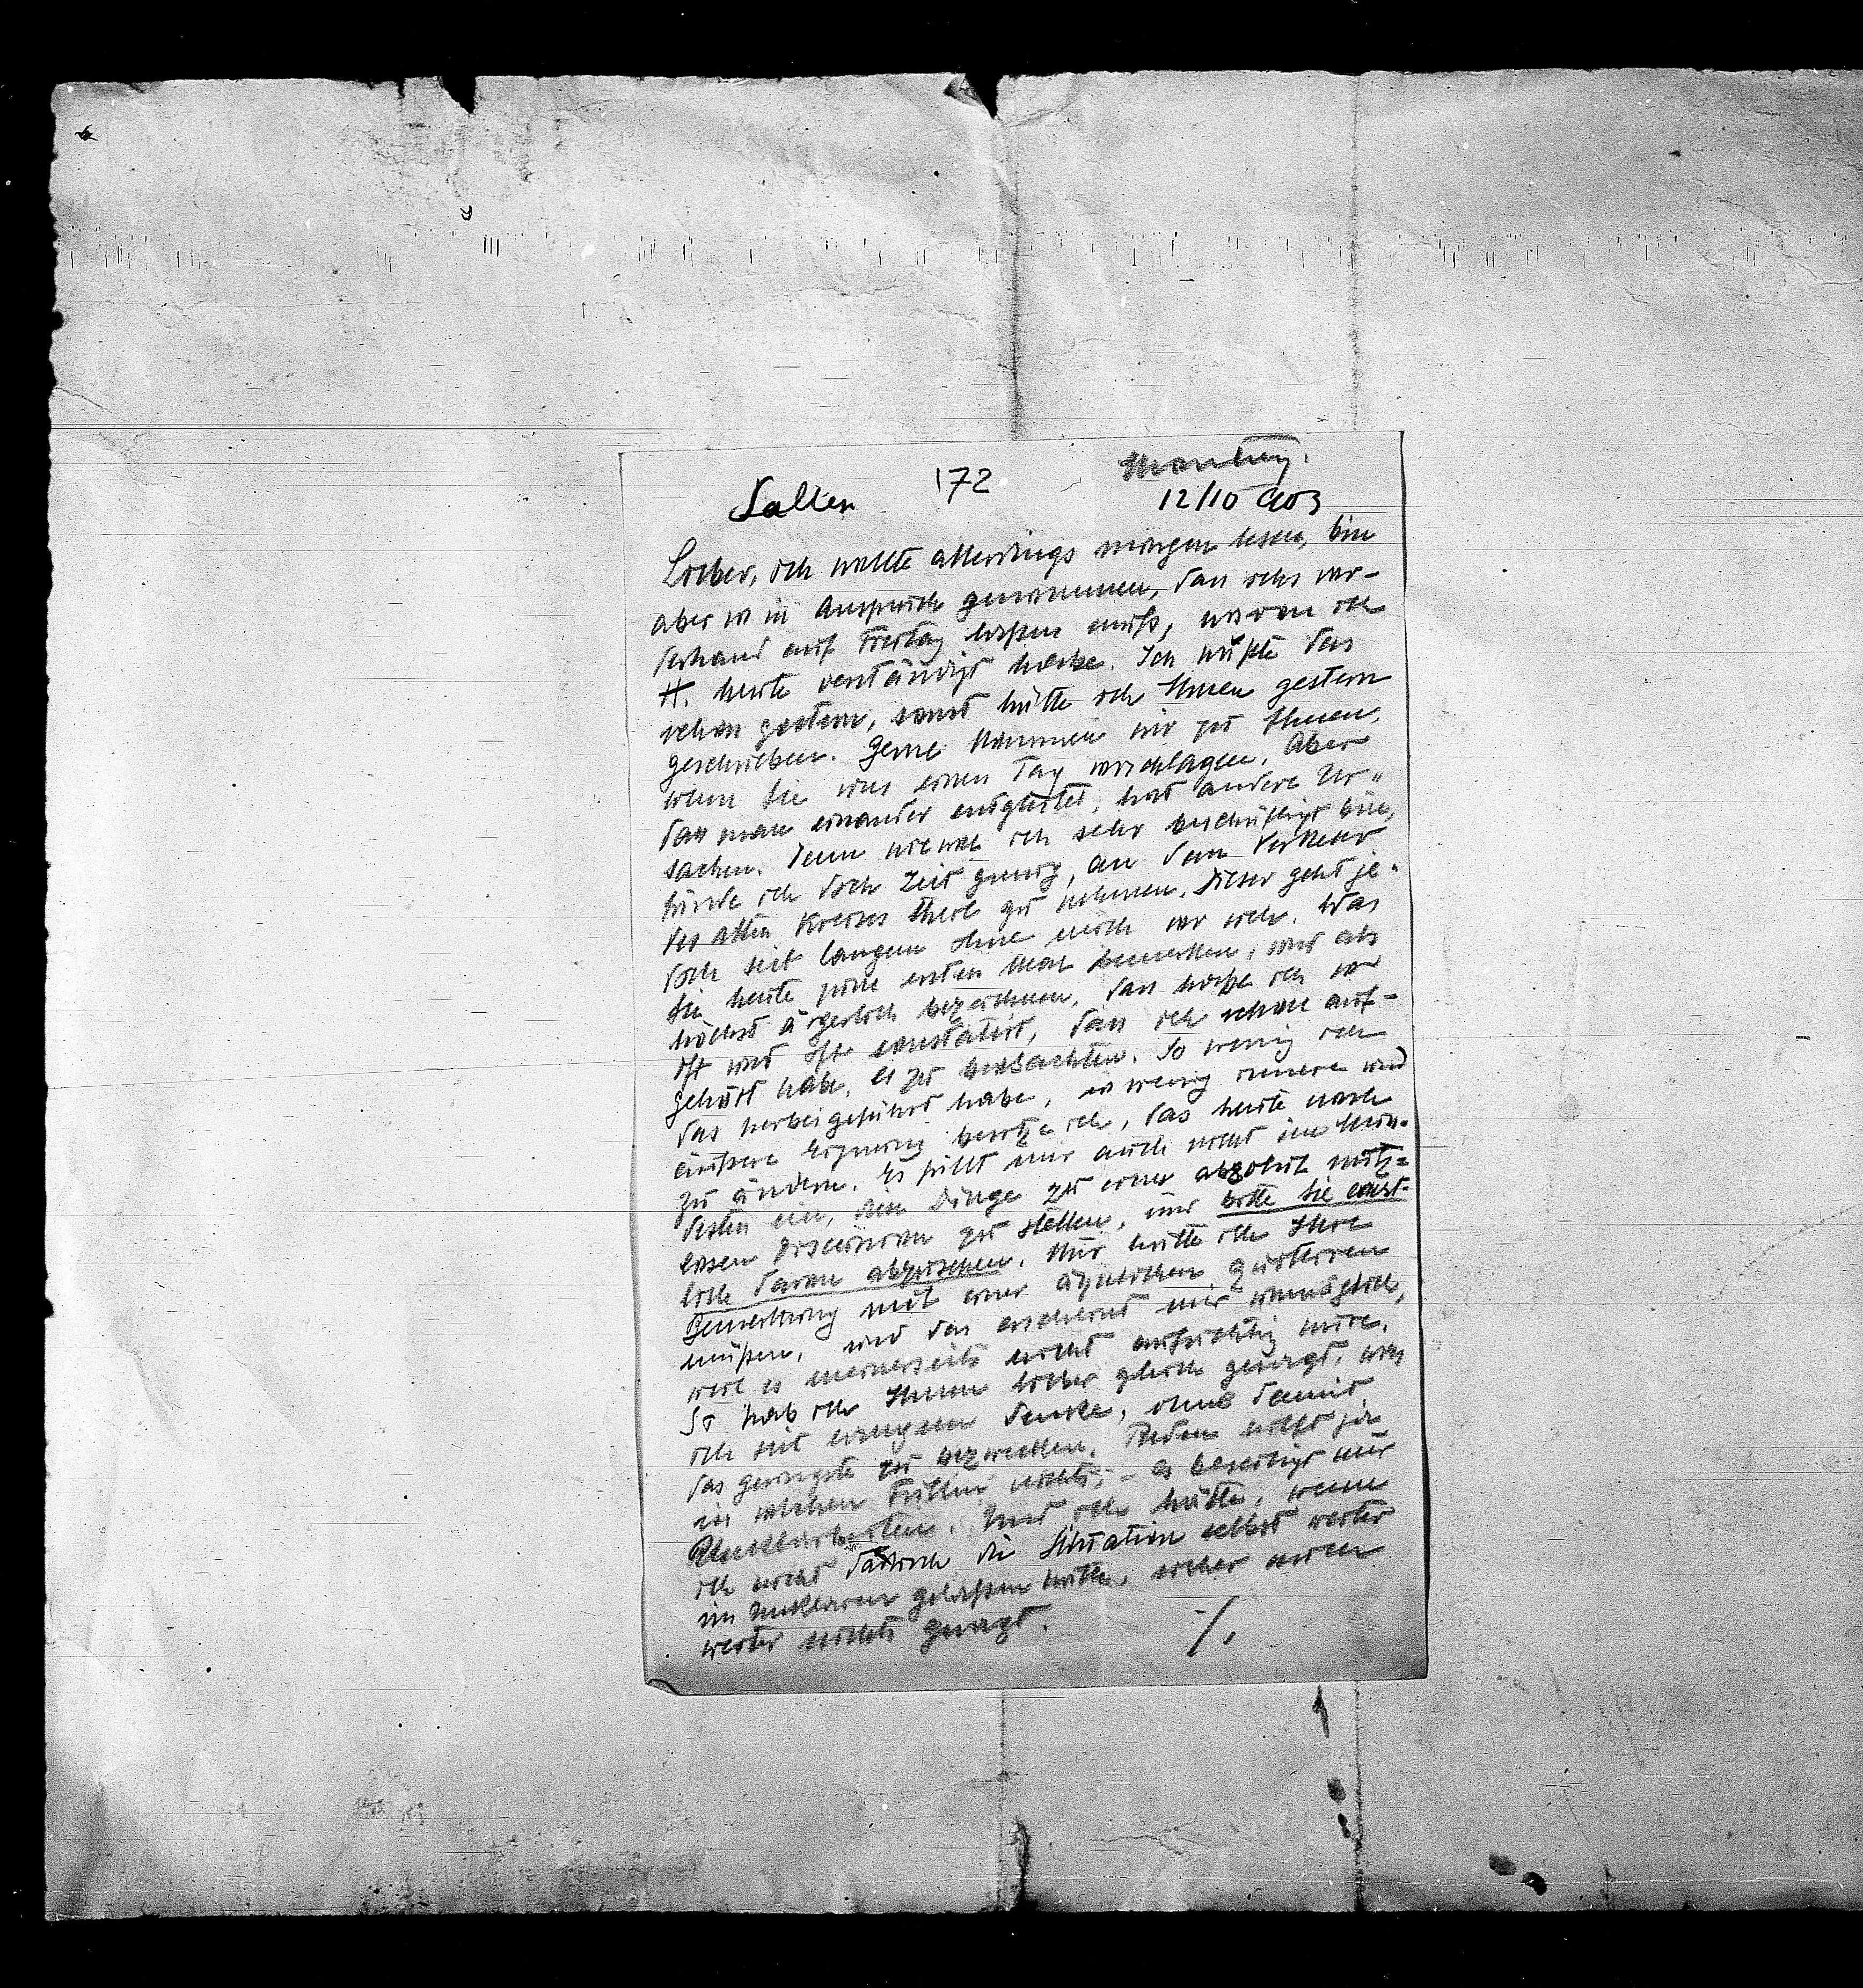 172
Montag.
Salten
12/10 903
Lieber, ich wollte allerdings morgen lesen, bin
aber so in Anspruch genommen, dass ichs vor-
derhand auf Freitag lassen muß, wovon ich
H. heute verständigt habe. Ich wußte das
schon gestern, sonst hätte ich Ihnen gestern
geschrieben. Gerne kommen wir zu Ihnen,
wenn Sie uns einen Tag vorschlagen. Aber
dass man einander entgleitet, hat andere Ur-
sachen. Denn wiewol ich sehr beschäftigt bin,
fände ich doch Zeit genug, an dem Verkehr
des alten Kreises theil zu nehmen. Dieser geht je-
doch seit langem ohne mich vor sich. Was
Sie heute zum ersten Mal bemerken, und als
höchst ärgerlich bezeichnen, das habe ich so
oft und oft constatirt, dass ich schon auf-
gehört habe, es zu beobachten. So wenig ich
das herbeigeführt habe, so wenig innere und
äußere Eignung besitze ich, das heute noch
zu ändern. Es fällt mir auch nicht im Min-
desten ein, diese Dinge zu einer absolut nutz-
losen Discussion zu stellen, und bitte Sie ernst-
lich davon abzusehen. Nur hätte ich Ihre
Bemerkung mit einer ähnlichen quittiren
müßen, und das erscheint mir unmöglich,
weil es meinerseits nicht aufrichtig wäre.
So hab ich Ihnen lieber gleich gesagt, was
ich seit langem denke, ohne damit
das geringste zu bezwecken. Reden hilft ja
in solchen Fällen nichts, – es beseitigt nur
Unklarheiten. Und ich hätte, wenn
ich nicht dadurch die Situation selbst weiter
im Unklaren gelassen hätte, sicher auch
weiter nichts gesagt.
./.